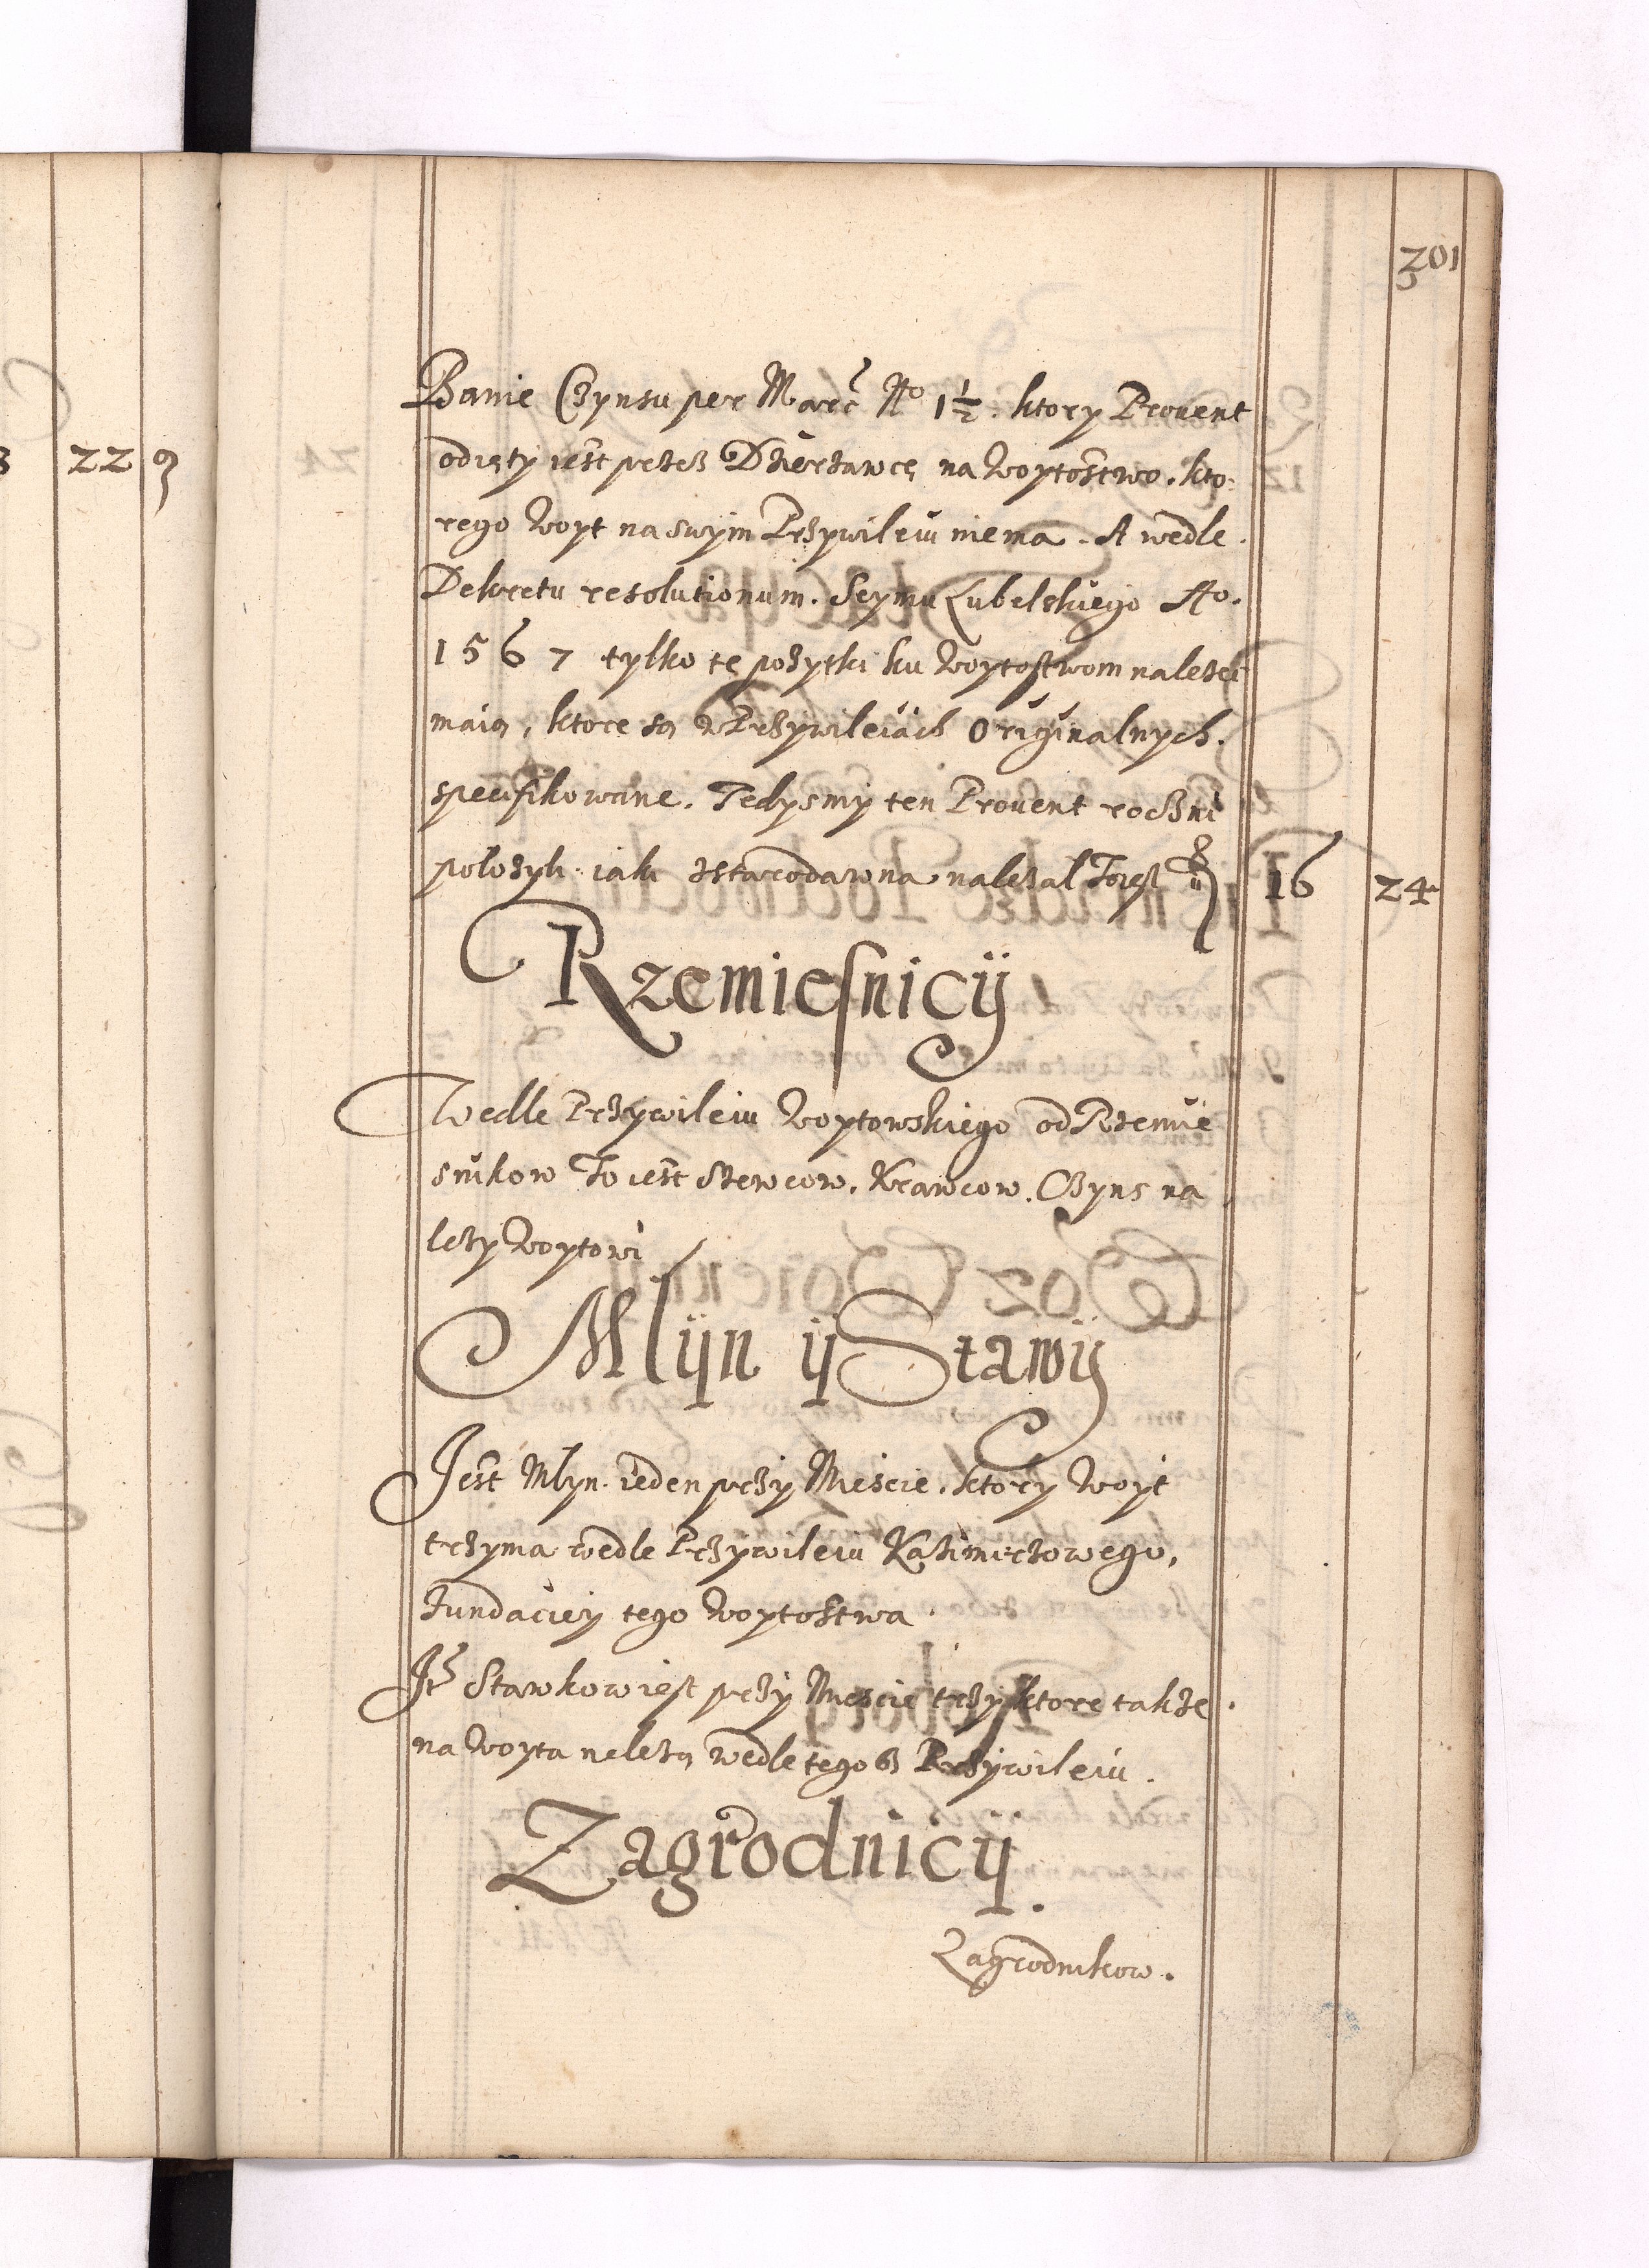 201
22 9
Banie Czynsu per Marc No 1½. ktory Provent
odięty iest przez Dzierzawcę na Woytostwo. kto-
rego Woyt na swym Przywileiu niema. A wedle
Dekretu resolutionum. Seymu Lubelskiego Ao.
1567 tylko te pożytki ku Woytostwom należeć
maią, ktore są w Przywileiach Originalnych.
specifikowane. Tedysmy ten Provent roczni
położyli iako zstarodawna należał To iest 16 24
Rzemiesnicy
Wedle Przywileiu Woytowskiego od Rzemie
snikow To iest Szewcow, Krawcow. Czyns na
leży Woytowi
Mlyn y Stawy
Jest Mlyn ieden przy Miescie, ktory Woyt
trzyma wedle Przywileiu Kazimierzowego,
Fundaciey tego Woytostwa.
It Stawkow iest przy Miescie trzy ktore takze
na Woyta nelezą wedle tego sz Przywileiu.
Zagrodnicy.
Zagrodnikow.